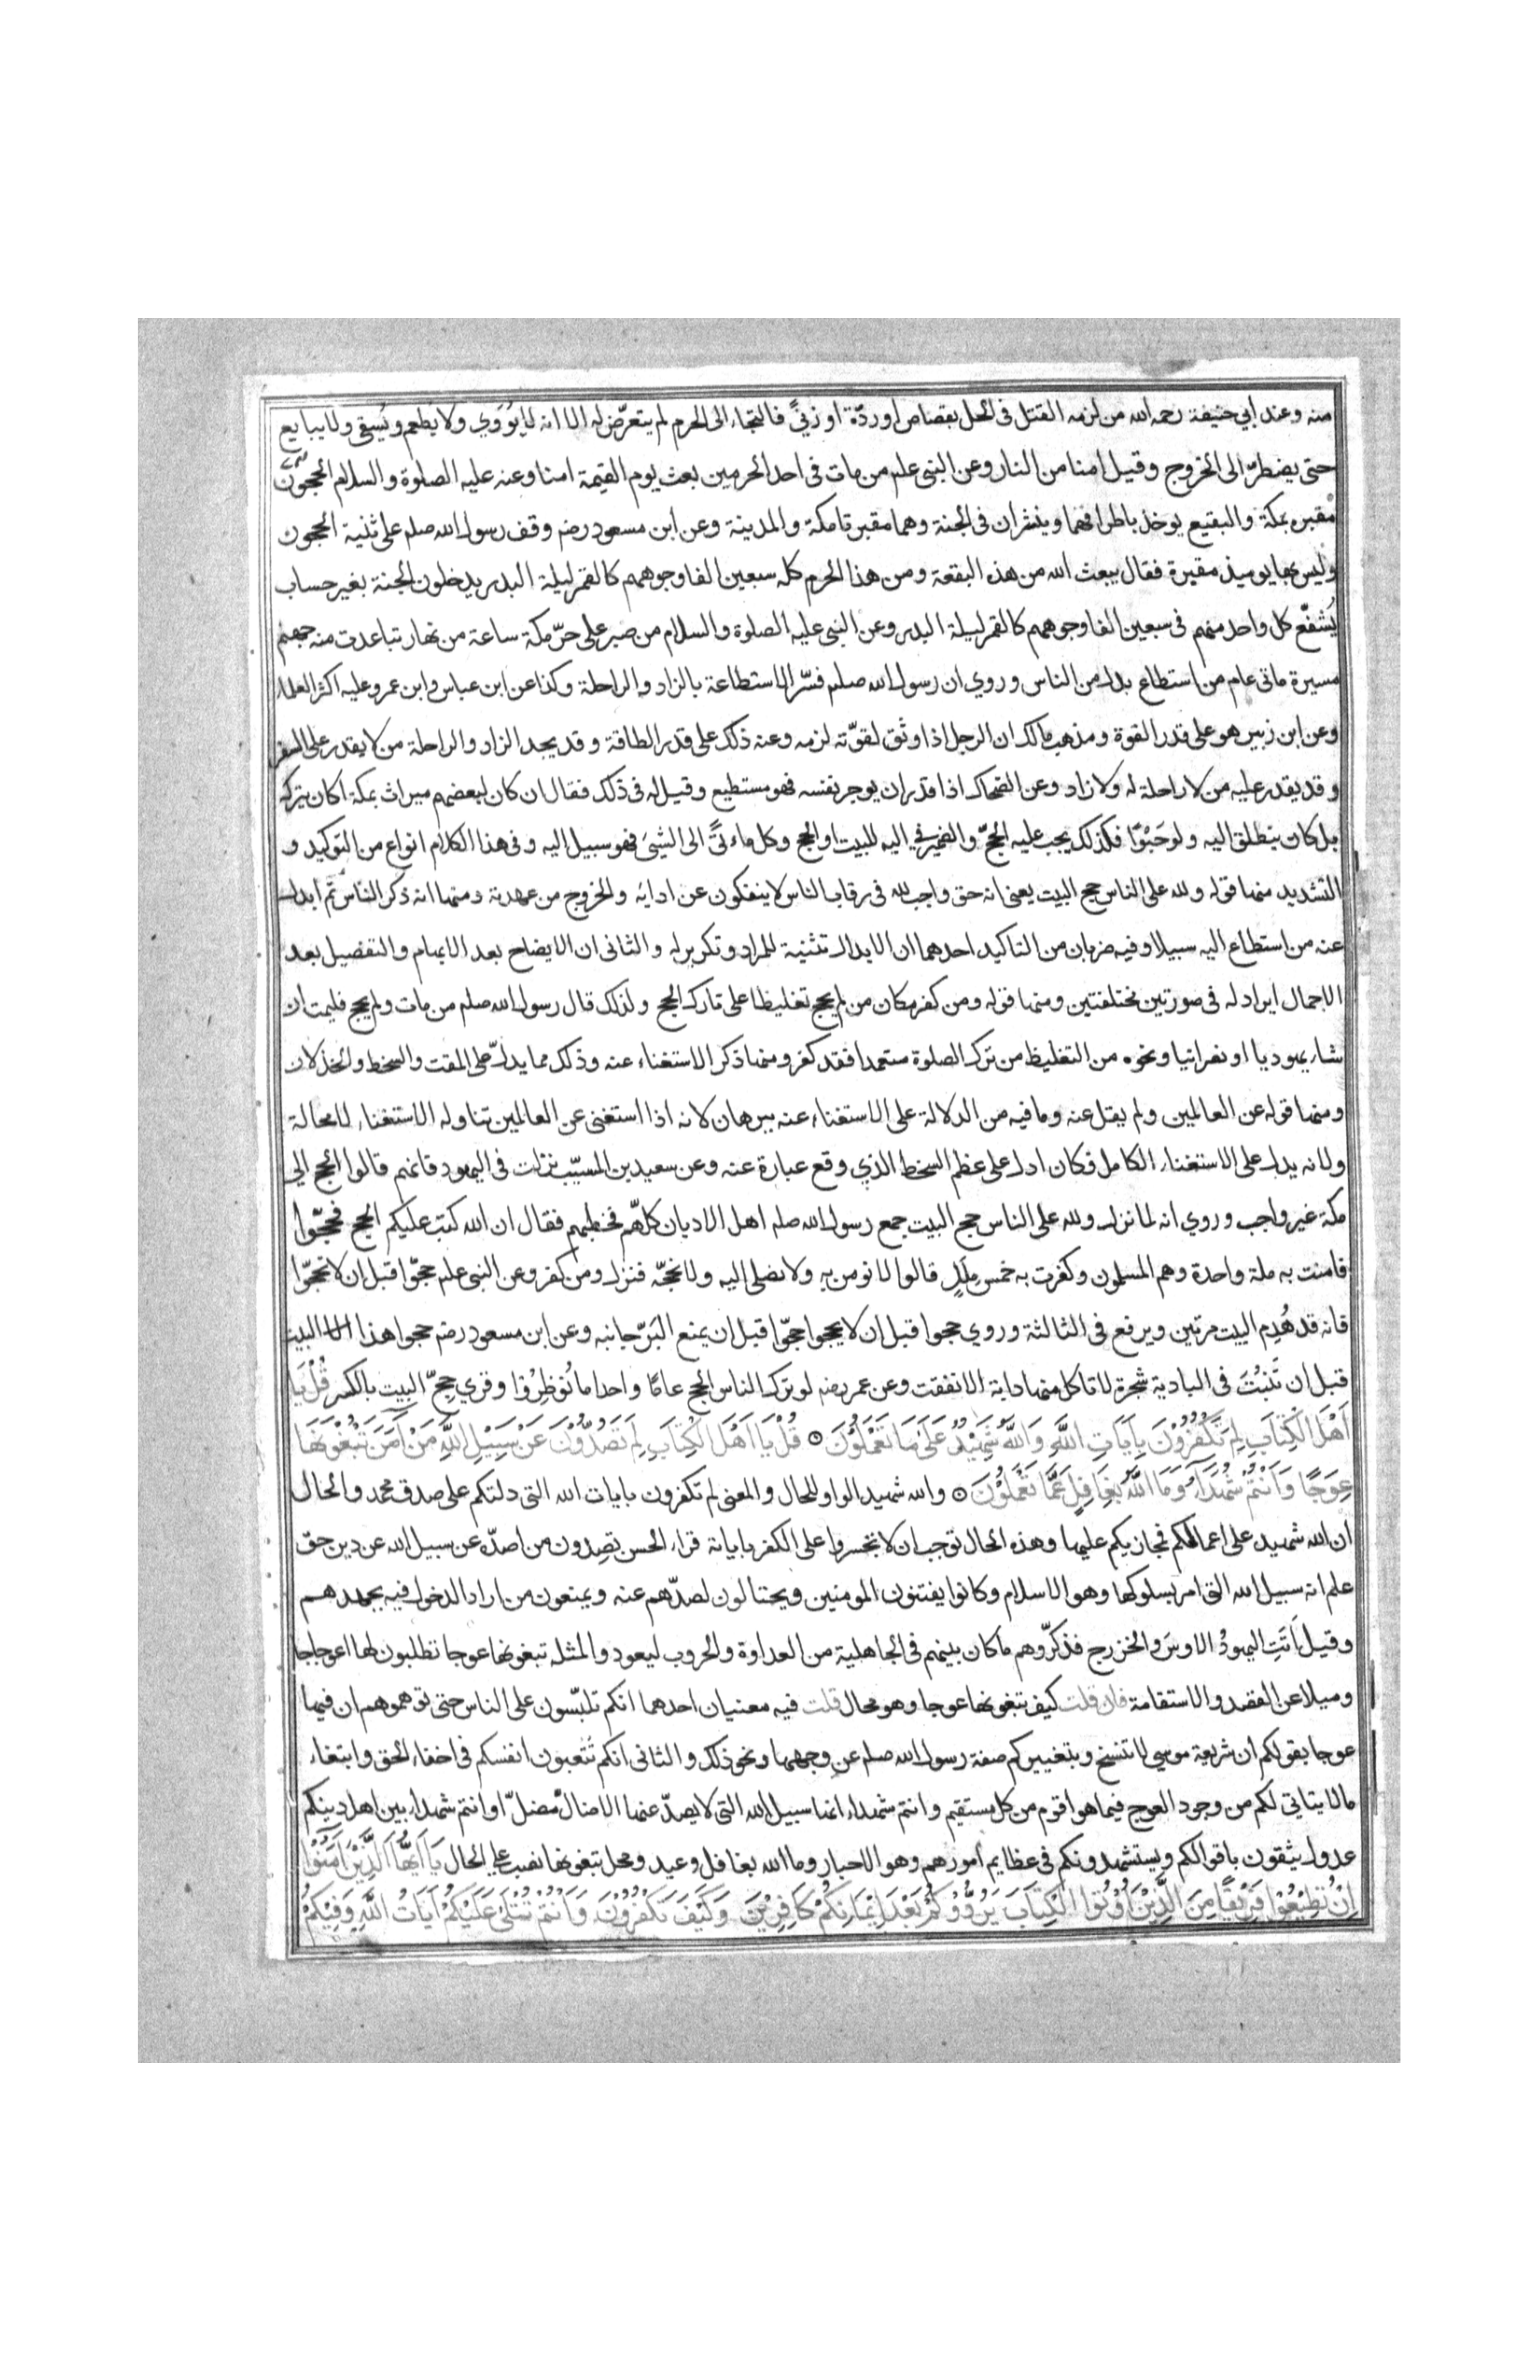 منه وعند أبي حنيفة رحمه الله من لزمه القتل في الحل بقصاص او ردّة او زنيً فالتجاء الى الحرم لم يتعرّض له الا انه لا يُوَوي ولا يُطعم ويُسقى ولا يبايع
حتى يضطرّ الى الخروج وقيل امنا من النار وعن النبي علم من مات في احد الحرمين بعث يوم القيمة امنا وعنه عليه الصلوة والسلام الحجون
مقبره بمكة والبقيع يوخل باطرافهما وينثران في الجنة وهما مقبرتا مكة والمدينة وعن ابن مسعود رضه وقف رسول الله صلم على ثنية الحجون
وليس بها يوميذ مقبرة فقال يبعث الله من هذه البقعة ومن هذا الحرم كله سبعين الفا وجوههم كالقمر ليلة البدر يدخلون الجنة بغير حساب
يُشفّع كل واحد منهم في سبعين الفا وجوههم كالقمر ليلة البدر وعن النبي عليه الصلوة والسلام من صبر على حرّ مكة ساعة من نهار تباعدت منه جهنم
مسيرة مائى عام من استطاع بدل من الناس وروي ان رسول الله صلم فسّر الاستطاعة بالزاد والراحلة وكذا عن ابن عباس وابن عمر وعليه اكثر العلماء
وعن ابن زبير هو على قدر القوة ومذهب مالك ان الرجل اذا وثق لقوّته لزمه وعنه ذلك على قدر الطاقة وقد يجد الزاد والراحلة من لا يقدر على السفر
وقد يقدر عليه من لا راحلة له ولا زاد وعن الضحاك اذا قدر ان يوجر نفسه فهو مستطيع وقيل له في ذلك فقال ان كان لبعضهم ميراث بمكة اكان يتركه
بل كان ينطلق اليه ولو حَبْوًا فكذلك يجب عليه الحجّ والضمير في اليه للبيت او الحج وكل ماءتىً الى الشيئ فهو سبيل اليه وفي هذا الكلام انواع من التوكيد و
التشديد منها قوله ولله على الناس حج البيت يعني انه حق واجب لله في رقاب الناس لا ينفكون عن ادايه والخروج من عهدته ومنها انه ذكر الناس ثم ابدل
عنه من استطاع اليه سبيلا وفيه ضربان من التاكيد احدهما ان الابدال تثنية للمراد وتكرير له والثاني ان الايضاح بعد الابهام والتفصيل بعد
الاجمال ايراد له في صورتين مختلفتين ومنها قوله ومن كفر مكان من لم يحج تغليظا على تارك الحج ولذلك قال رسول الله صلم من مات ولم يحج فليمت ان
شاء يهوديا او نصرانيا ونحوه من التغليظ من ترك الصلوة متعمدا فقد كفر ومنها ذكر الاستغناء عنه وذلك مما يدلّ على المقت والسخط والخذلان
ومنها قوله عن العالمين ولم يقل عنه وما فيه من الدلالة على الاستغناء عنه ببرهان لانه اذا استغنى عن العالمين تناوله الاستغناء لا محالة
ولانه يدل على الاستغناء الكامل فكان ادل على عظم السخط الذي وقع عبارة عنه وعن سعيد بن المسيّب نزلت في اليهود فانهم قالوا الحج الي
مكة غير واجب وروي انه لما نزل ولله على الناس حج البيت جمع رسول الله صلم اهل الاديان كلّهم فخطبهم فقال ان الله كتب عليكم الحج فحجّوا
فامنت به ملة واحدة وهم المسلمون وكفرت به خمس مِلَلٍ قالوا لا نومن به ولا نصلى اليه ولا نحجّه فنزل ومن كفر وعن النبي علم حجّوا قبل ان لا تحجّوا
فانه قد هُدِم البيت مرتين ويرفع في الثالثة وروي حجوا قبل ان لا يحجوا حجّوا قبل ان يمنع البَرّ جانبه وعن ابن مسعود رضه حجوا هذا البيت
قبل ان تَنبُتَ في البادية شجرة لا تاكل منها دابة الا نفقت وعن عمر رضه لو ترك الناس الحج عامًا واحدا ما نُوظِرُوا وقري حِجّ البيت بالكسر قُلْ يَا
اَهْلَ الْكِتَابِ لِمَ تَكْفُرُوْنَ بِاٰيَاتِ اللّٰهِ وَاللّٰهُ شَهِيْدٌ عَلَىٰ مَا تَعْمَلُوْنَ ۞ قُلْ يَا اَهْلَ الْكِتَابِ لِمَ تَصُدُّوْنَ عَنْ سَبِيْلِ اللّٰهِ مَنْ آمَنَ تَبْغُوْنَهَا
عِوَجًا وَاَنْتُمْ شُهَدَآءُ وَمَا اللّٰهُ بِغَافِلٍ عَمَّا تَعْمَلُوْنَ ۞ والله شهيد الواو للحال والمعنى لم تكفرون بايات الله التي دلتكم على صدق محمد والحال
ان الله شهيد على اعمالكم فمجازيكم عليها وهذه الحال توجب ان لا تجسروا على الكفر باياته قراء الحسن تصِدون من اصدّه عن سبيل الله عن دين حق
علم انه سبيل الله التي امر بسلوكها وهو الاسلام وكانوا يفتنون المومنين ويحتالون لصدّهم عنه ويمنعون من اراد الدخول فيه بجهدهم
وقيل اَتَتِ اليهودُ الاوسَ والخزرج فذكّروهم ما كان بينهم في الجاهلية من العداوة والحروب ليعودوا لمثله تبغونها عوجا تطلبون لها اعوجاجا
وميلا عن القصد والاستقامة فان قلت كيف تبغونها عوجا وهو محال قلت فيه معنيان احدهما انكم تلبّسون على الناس حتى توهموهم ان فيها
عوجا بقولكم ان شريعة موسي لا تنسخ وبتغييركم صفة رسول الله صلم عن وجهها ونحو ذلك والثاني انكم تُتعبون انفسكم في اخفاء الحق وابتغاء
ما لا يتاتي لكم من وجود العوج فيما هو اقوم من كل مستقيم وانتم شهداء انها سبيل الله التي لا يصدّ عنها الا ضالّ مُضلّ او انتم شهداء بين اهل دينكم
عدول يثقون باقوالكم ويستشهدونكم في عظايم امورهم وهو الاحبار وما الله بغافل وعيد ومحل تبغونها نصب على الحال يَا اَيُّهَا الَّذِيْنَ اٰمَنُوْا
اِنْ تُطِيْعُوْا فَرِيْقًا مِنَ الَّذِيْنَ اُوْتُوا الْكِتَابَ يَرُدُّوْكُمْ بَعْدَ اِيْمَانِكُمْ كَافِرِيْنَ وَكَيْفَ تَكْفُرُوْنَ وَاَنْتُمْ تُتْلَىٰ عَلَيْكُمْ اٰيَاتُ اللّٰهِ وَفِيْكُمْ